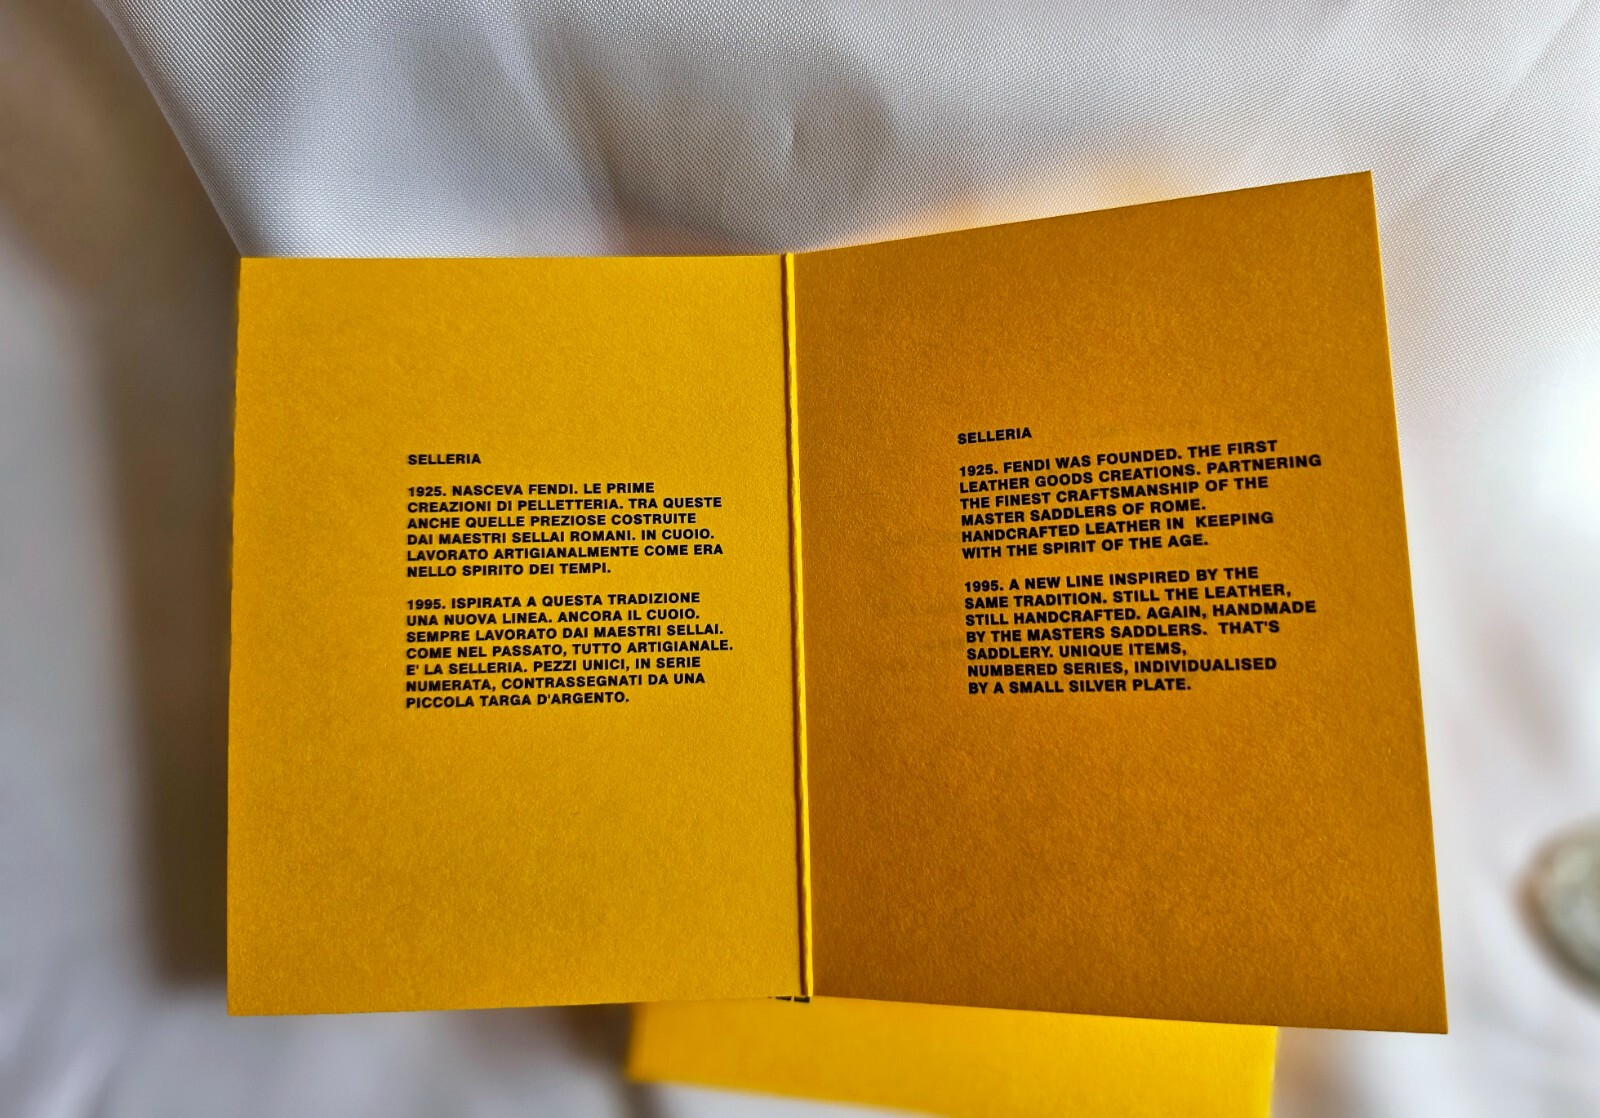 SELLERIA
1925. NASCEVA FENDI. LE PRIME
CREAZIONI DI PELLETTERIA. TRA QUESTE
ANCHE QUELLE PREZIOSE COSTRUITE
DAI MAESTRI SELLAI ROMANI. IN CUOIO.
LAVORATO ARTIGIANALMENTE COME ERA
NELLO SPIRITO DEI TEMPI.
1995. ISPIRATA A QUESTA TRADIZIONE
UNA NUOVA LINEA. ANCORA IL CUOIO.
SEMPRE LAVORATO DAI MAESTRI SELLAI.
COME NEL PASSATO, TUTTO ARTIGIANALE.
E' LA SELLERIA. PEZZI UNICI, IN SERIE
NUMERATA, CONTRASSEGNATI DA UNA
PICCOLA TARGA D'ARGENTO.
SELLERIA
1925. FENDI WAS FOUNDED. THE FIRST
LEATHER GOODS CREATIONS. PARTNERING
THE FINEST CRAFTSMANSHIP OF THE
MASTER SADDLERS OF ROME.
HANDCRAFTED LEATHER IN KEEPING
WITH THE SPIRIT OF THE AGE.
1995. A NEW LINE INSPIRED BY THE
SAME TRADITION. STILL THE LEATHER,
STILL HANDCRAFTED. AGAIN, HANDMADE
BY THE MASTERS SADDLERS. THAT'S
SADDLERY. UNIQUE ITEMS,
NUMBERED SERIES, INDIVIDUALISED
BY A SMALL SILVER PLATE.